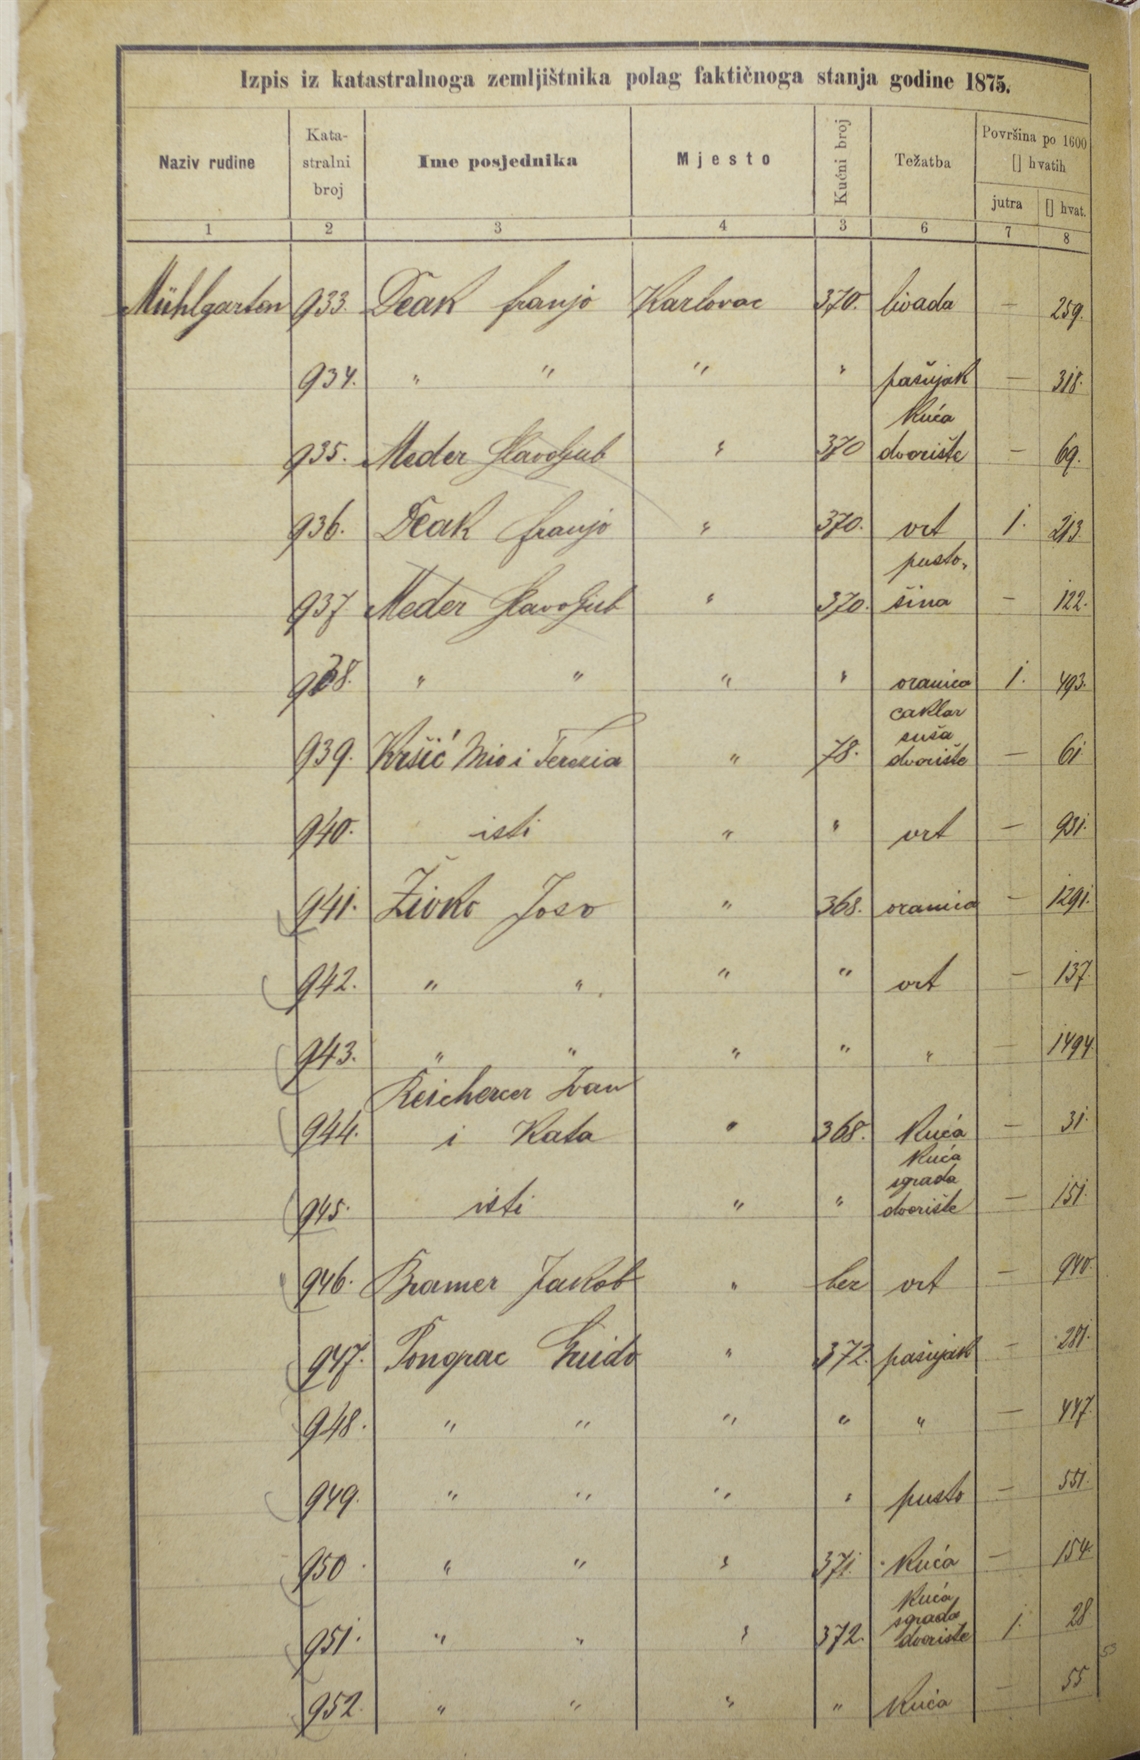 Izpis iz katastralnoga zemljištnika polag faktičnoga stanja godine 1875.
Naziv rudine Kata-stralni broj Ime posjednika Mjesto Kućni broj Težatba Površina po 1600 [] hvatih
jutra [] hvat.
1 2 3 4 3 6 7 8
Mühlgarten 933. Deak franjo Karlovac 370. livada — 259.
934. " " " " pašnjak — 318.
kuća
935. Meder Slavoljub " 370 dvorište — 69.
936. Deak franjo " 370. vrt 1. 213.
pusto-
937 Meder Slavoljub " 370. šina — 122.
938. " " " " oranica 1. 493.
caklar
suša
939. Kršić Mio i Terezia " 78. dvorište — 61
940. isti " " vrt — 931.
941. Živko Joso " 368. oranica — 1291.
942. " " " " vrt — 137
943. " " " " " — 1494.
Reicherzer Ivan
944. i Kata " 368. kuća — 31
kuća
sgrada
945. isti " " dvorište — 151.
946. Bramer Jakob " bez vrt — 940.
947. Pongrac Guido " 372. pašnjak — 281.
948. " " " " " — 447.
949. " " " " pusto — 551.
950. " " " 371. kuća — 154.
kuća
sgrada
951. " " " 372. dvorište 1. 28
53
952. " " " " kuća — 55